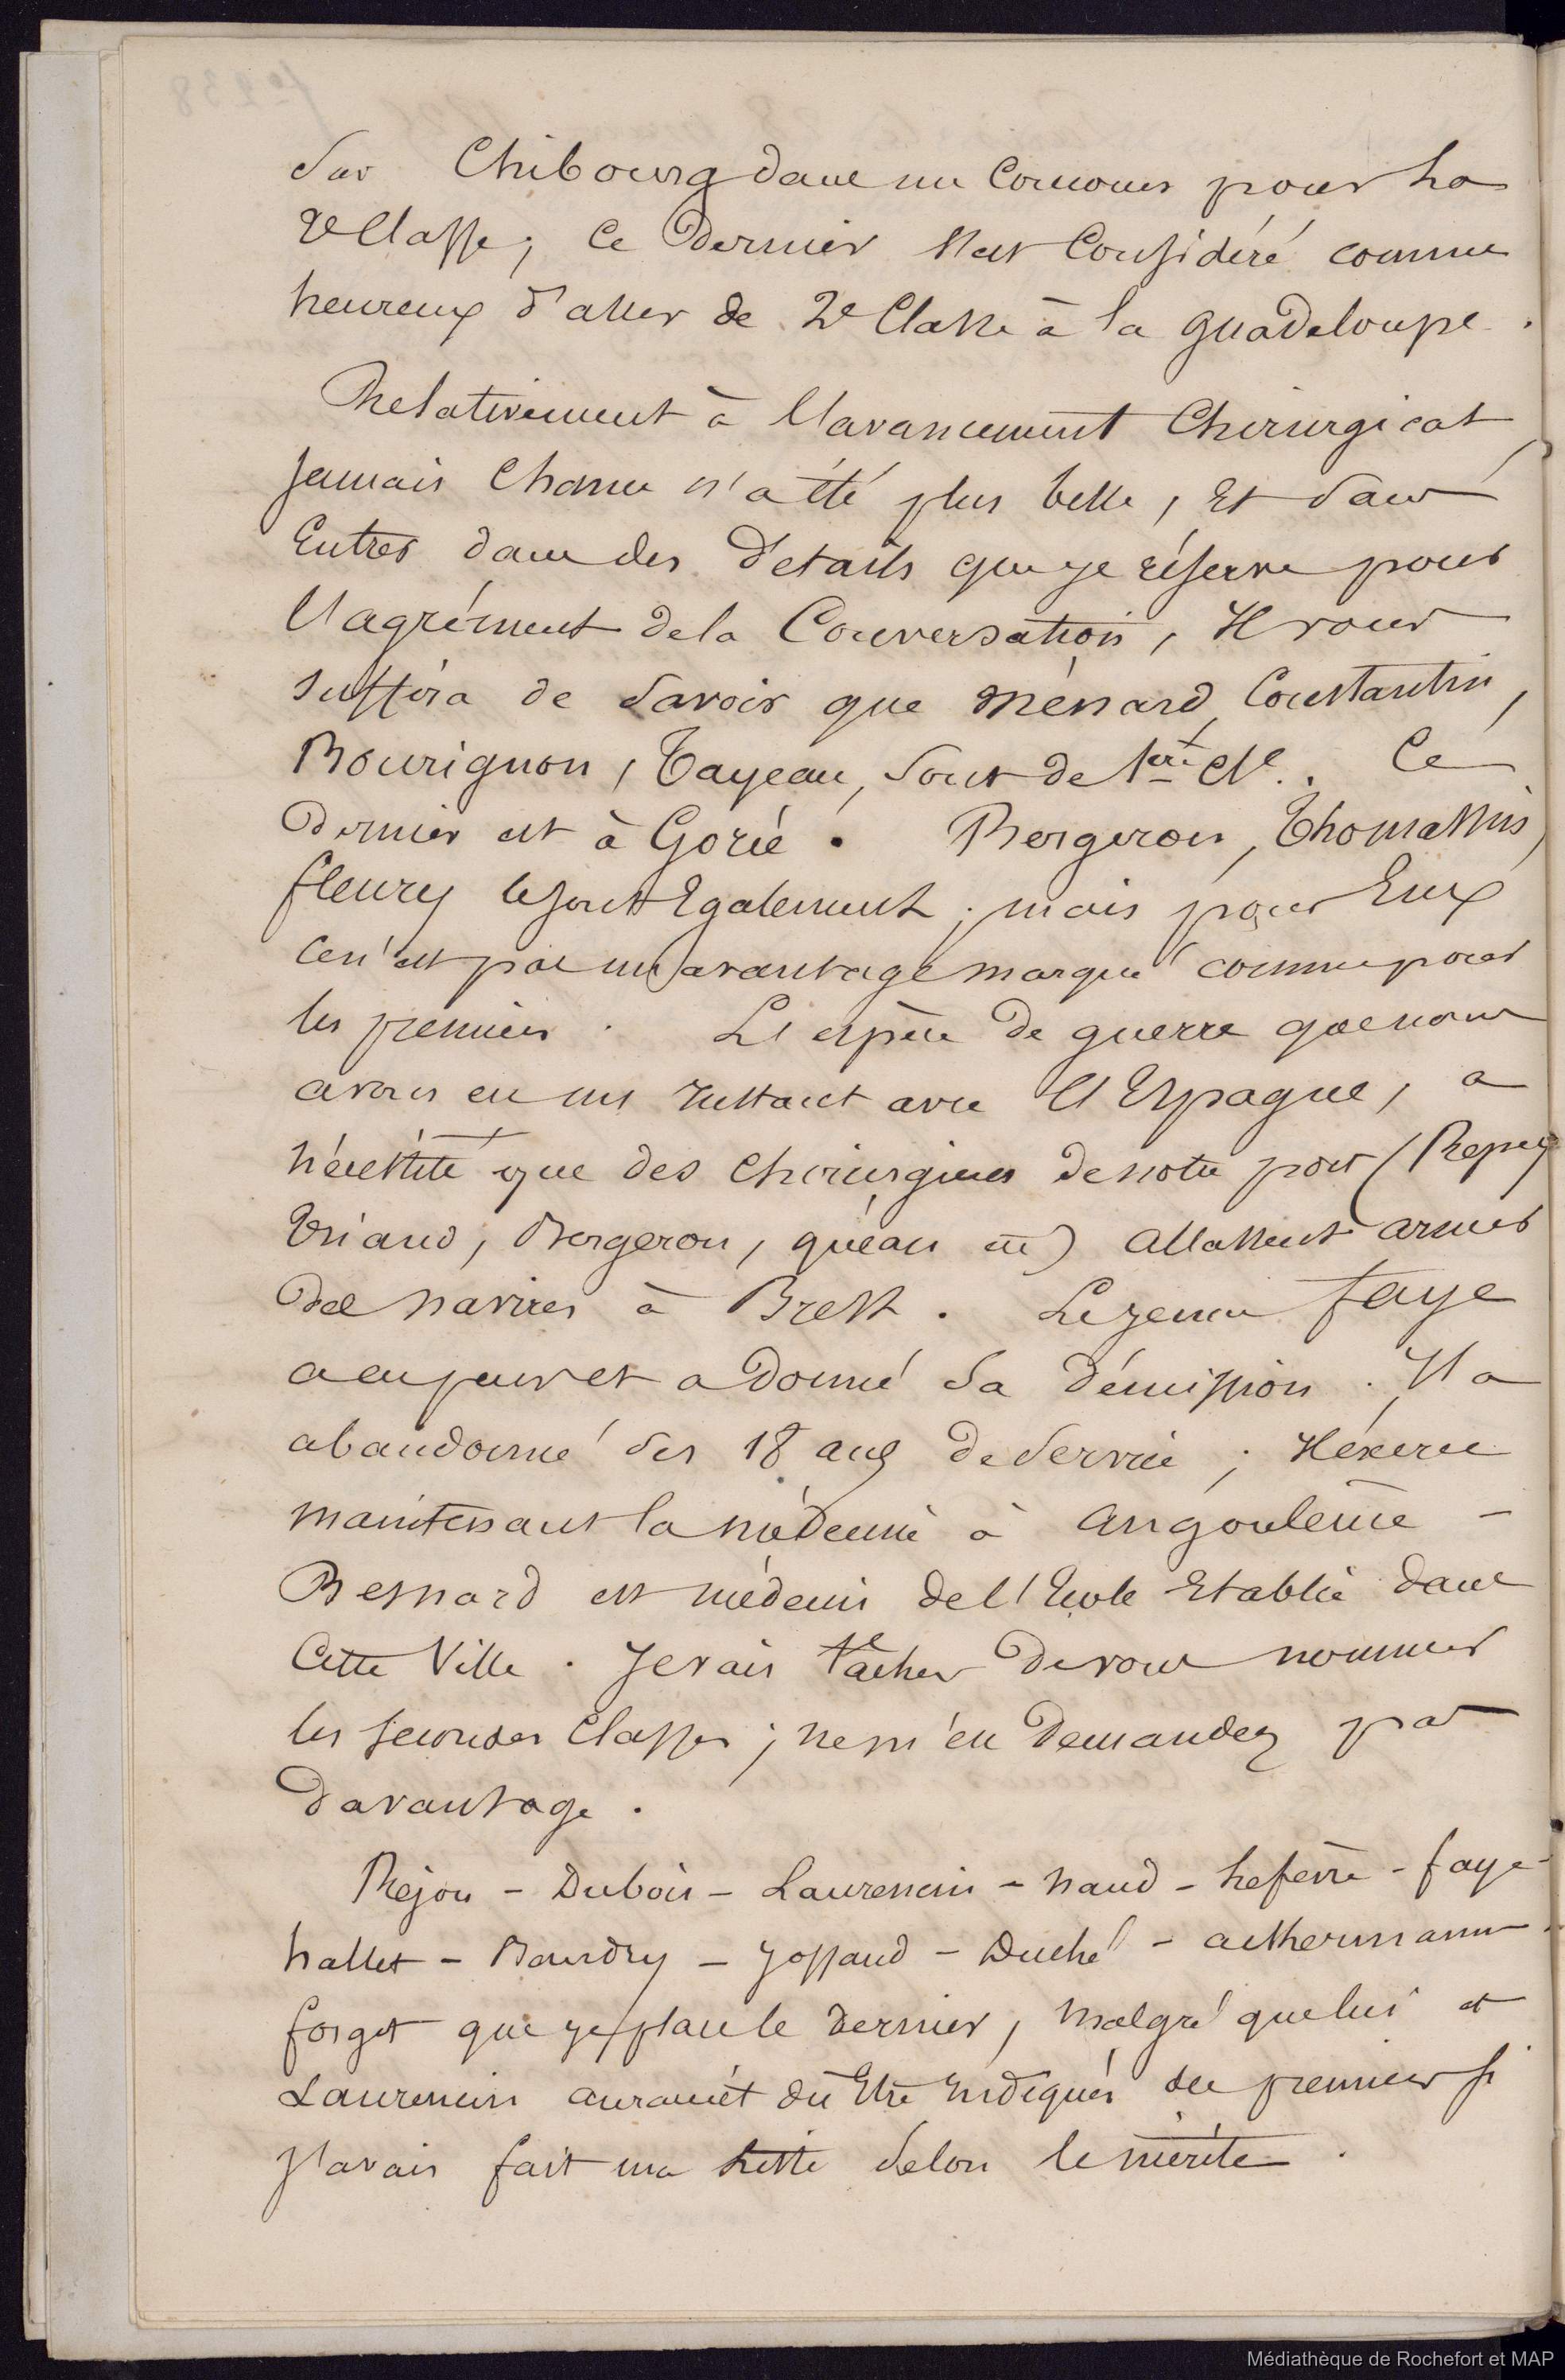 sur Chibourg dans un Concours pour la
2e Classe ; Ce Dernier s'est Considéré comme
heureux d'aller de 2e Classe à la Guadeloupe.
Relativement à l'avancement Chirurgical,
Jamais Chance n'a été plus belle, Et sans
Entrer dans des Détails que je réserve pour
l'agrément de la Conversation, Il vous
suffira de savoir que Ménard, Constantin,
Bourignon, Tayeau, sont de 1ère Cle. Ce
Dernier est à Gorée. Bergeron, Thomassin,
fleury le sont Egalement ; mais pour Eux
ce n'est pas un avantage marqué comme pour
les premiers. L'espèce de guerre que nous
avons eu un Instant avec l'Espagne, a
nécessité que des Chirurgiens de notre port (Repey
Triaud, Bergeron, quéau etc) allassent armer
des navires à Brest. Le jeune faye
a eu peur et a Donné sa démission. Il a
abandonné ses 18 ans de service ; Il éxerce
maintenant la médecine à angoulême -
Besnard est médecin de l'Ecole Etablie dans
Cette Ville. Je vais tâcher De vous nommer
les secondes Classes ; ne m'en Demandez pas
Davantage.
Réjou - Dubois - Laurencin - naud - Lefèvre - faye -
hallet - Baudry - Jossand - Duché - aethermann -
forget que je place le dernier, malgré que lui et
Laurencin auraient dû Etre Indiqués les premiers si
j'avais fait ma Liste selon le mérite.
Médiathèque de Rochefort et MAP